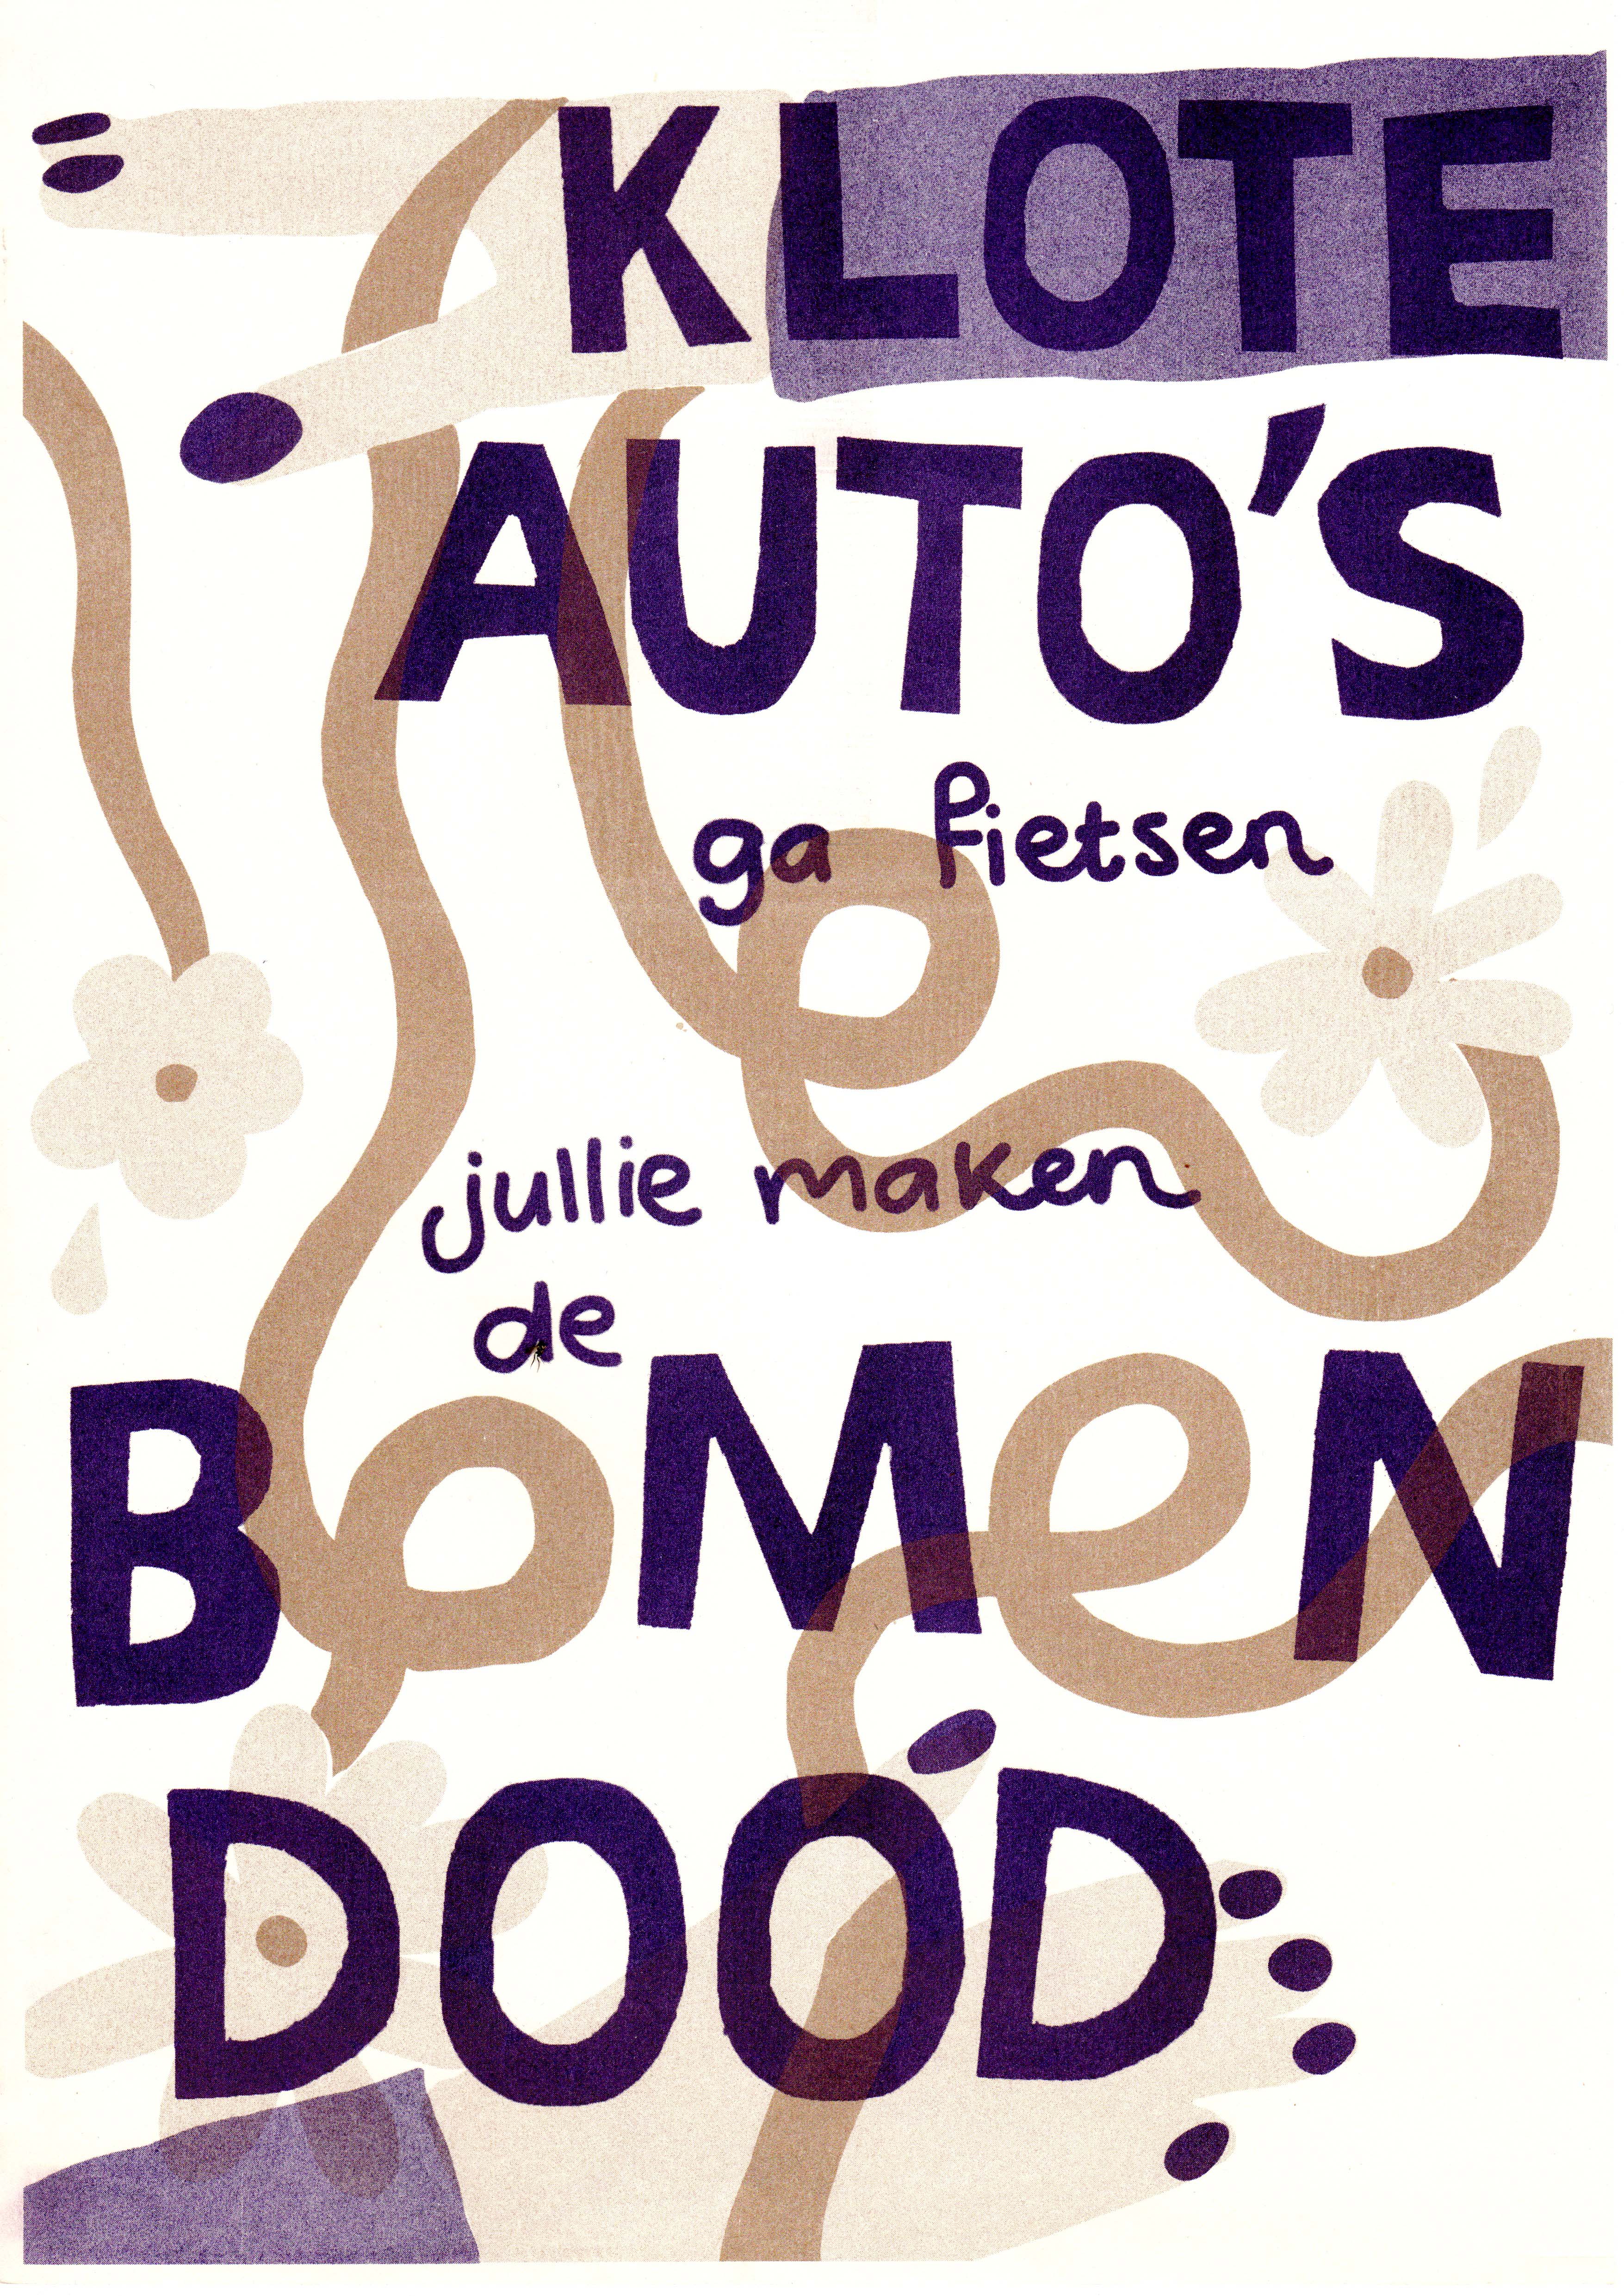 KLOTE
AUTO'S
ga fietsen
jullie maken
de
BomeN
DOOD